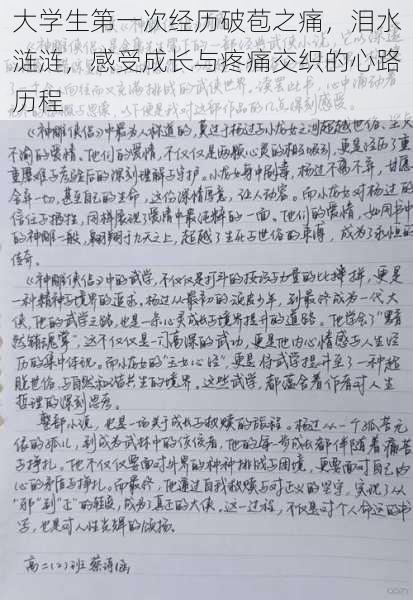 大学生第一次经历破苞之痛，泪水
涟涟，感受成长与疼痛交织的心路
历程
《神雕侠侣》中最为人称道的，莫过于杨过与小龙女之间超越世俗、至死
不渝的爱情。他们的爱情，不仅仅是两颗心灵的相互吸引，更是经历了重
重磨难与考验后的深刻理解与守护。小龙女身中剧毒，杨过不离不弃，甘愿
舍弃一切，甚至自己的生命，这份深情厚意，让人动容。而小龙女对杨过的
信任与牺牲，同样展现了爱情中最纯粹的一面。他们的爱情，如同书中
的神雕一般，翱翔于九天之上，超越了生死与世俗的束缚，成为了永恒的
传奇。
《神雕侠侣》中的武学，不仅仅是打斗的技巧与力量的比拼，更是
一种精神与境界的追求。杨过从最初的 少年，到最终成为一代大
侠，他的武学之路，也是一条心灵成长与境界提升的道路。他学会了“黯
然销魂掌”，这不仅仅是一门高深的武功，更是他内心情感与人生经
历的集中体现。而小龙女的“玉女心经”，更是将武学提升至了一种超
脱世俗、与自然和谐共生的境界。这些武学，都蕴含着作者对人生
哲理的深刻思考。
整部小说，也是一场关于成长与救赎的旅程。杨过从一个孤苦无
依的孤儿，到成为武林中的佼佼者，他的每一步成长都伴随着痛苦
与挣扎。他不仅仅要面对外界的种种挑战与困境，更要面对自己内
心的矛盾与挣扎。而最终，他通过自我救赎与对正义的坚守，实现了从
“邪”到“正”的转变，成为了真正的大侠。这一过程，不仅是对个人命运的书
写，也是对人性光辉的颂扬。
高二(2)班 蔡 涵